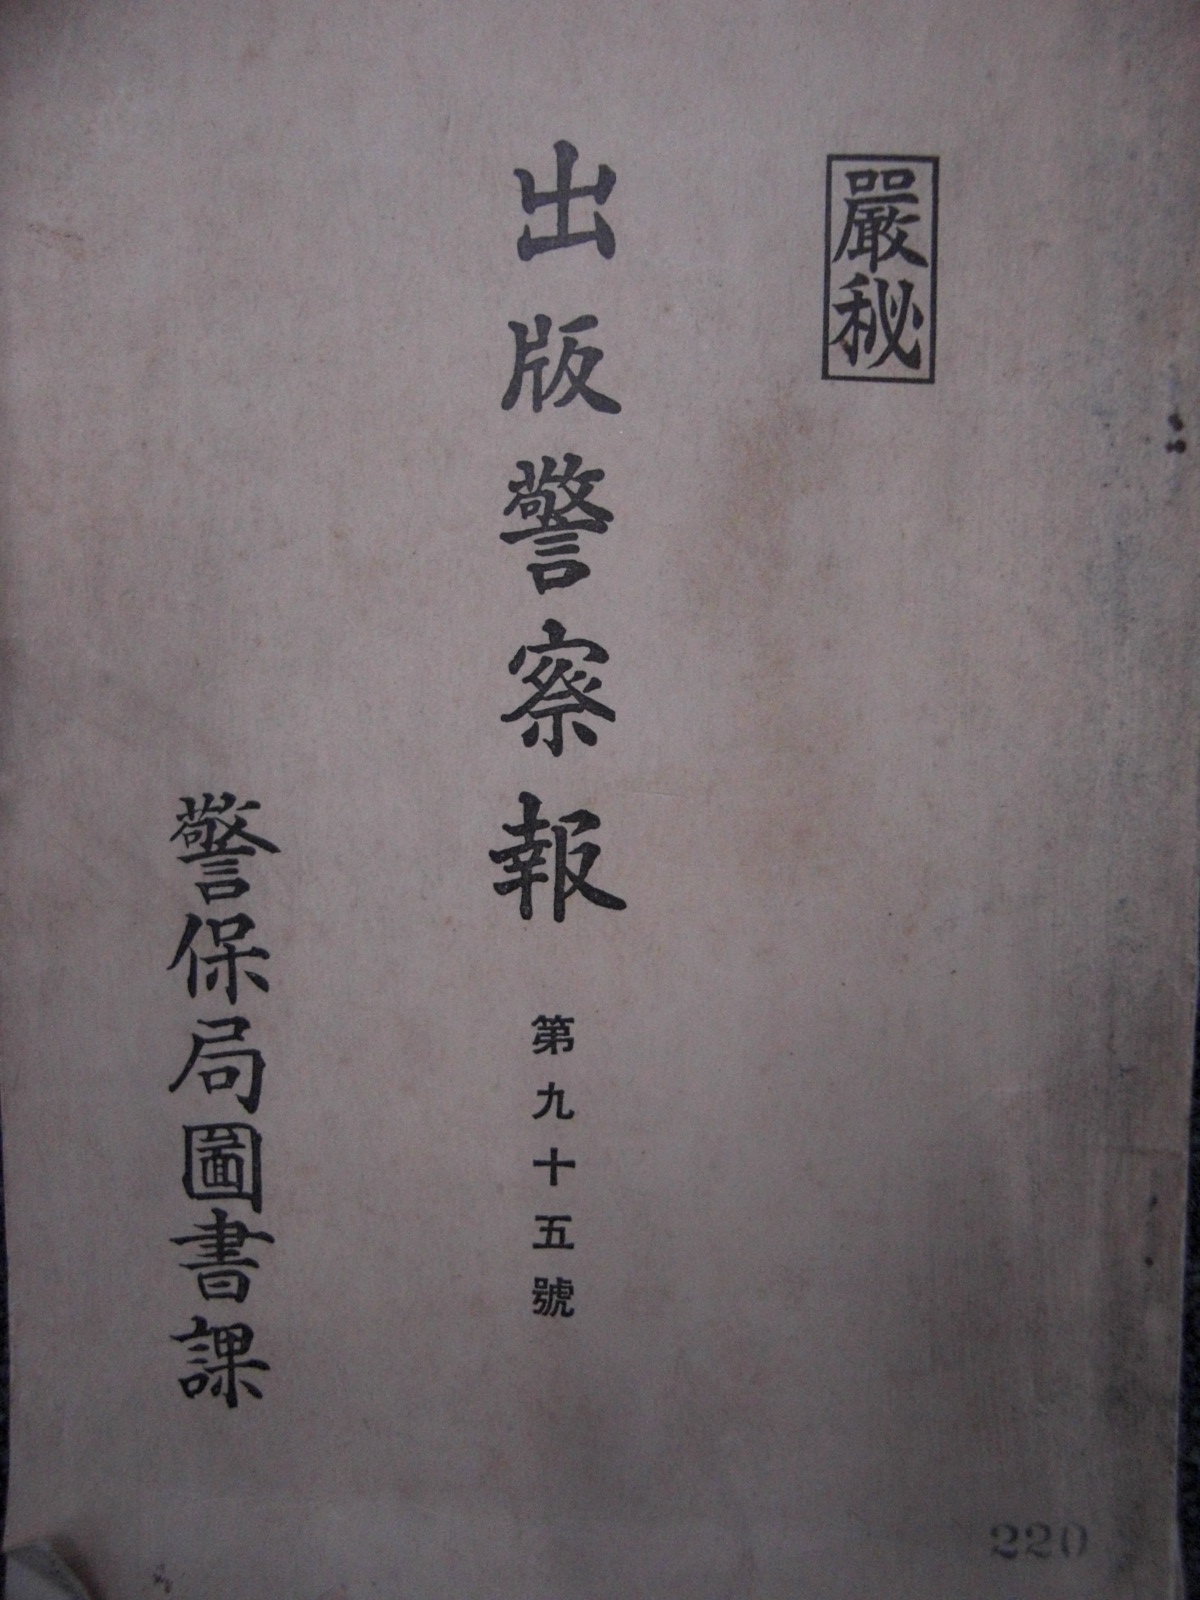 嚴秘
出版警察報 第九十五號
警保局圖書課
220